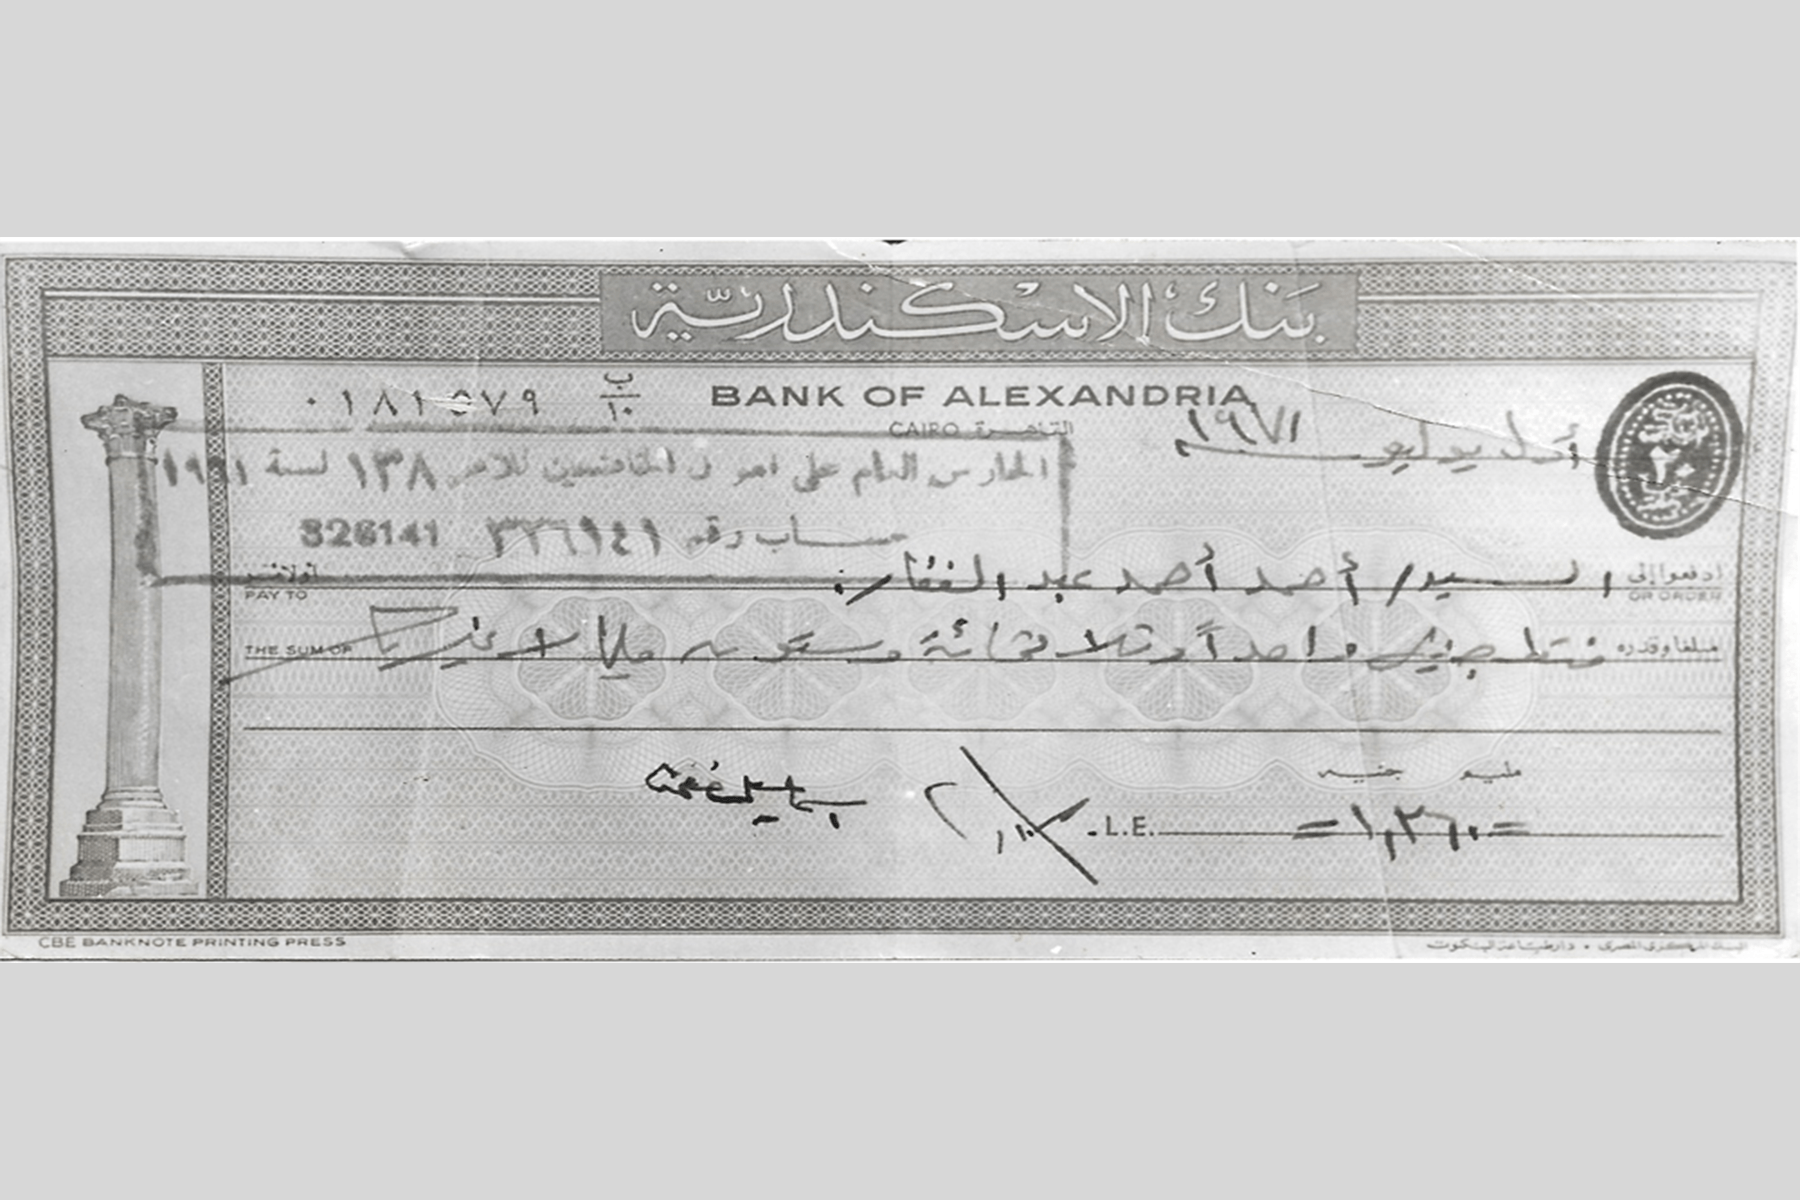 بنك الاسكندرية
٠١٨١٥٧٩ ب/١٠ BANK OF ALEXANDRIA
القاهرة CAIRO
أول يوليو ١٩٧١
٢٠
الحارس العام على اموال الخاضعين للأمر ١٣٨ لسة ١٩٦١
حساب رقم ٣٣٦١٤١ 326141
ادفعوا إلى السيد / أحمد أحمد عبد الغفار أولأمر
PAY TO OR ORDER
مبلغا وقدره فقط جنيه واحداً وثلاثمائة وستون مليما لا غير
THE SUM OF
مليم جنيه
L.E. =١,٣٦٠=
CBE BANKNOTE PRINTING PRESS
البنك المركزى المصرى • دار طباعة البنكنوت